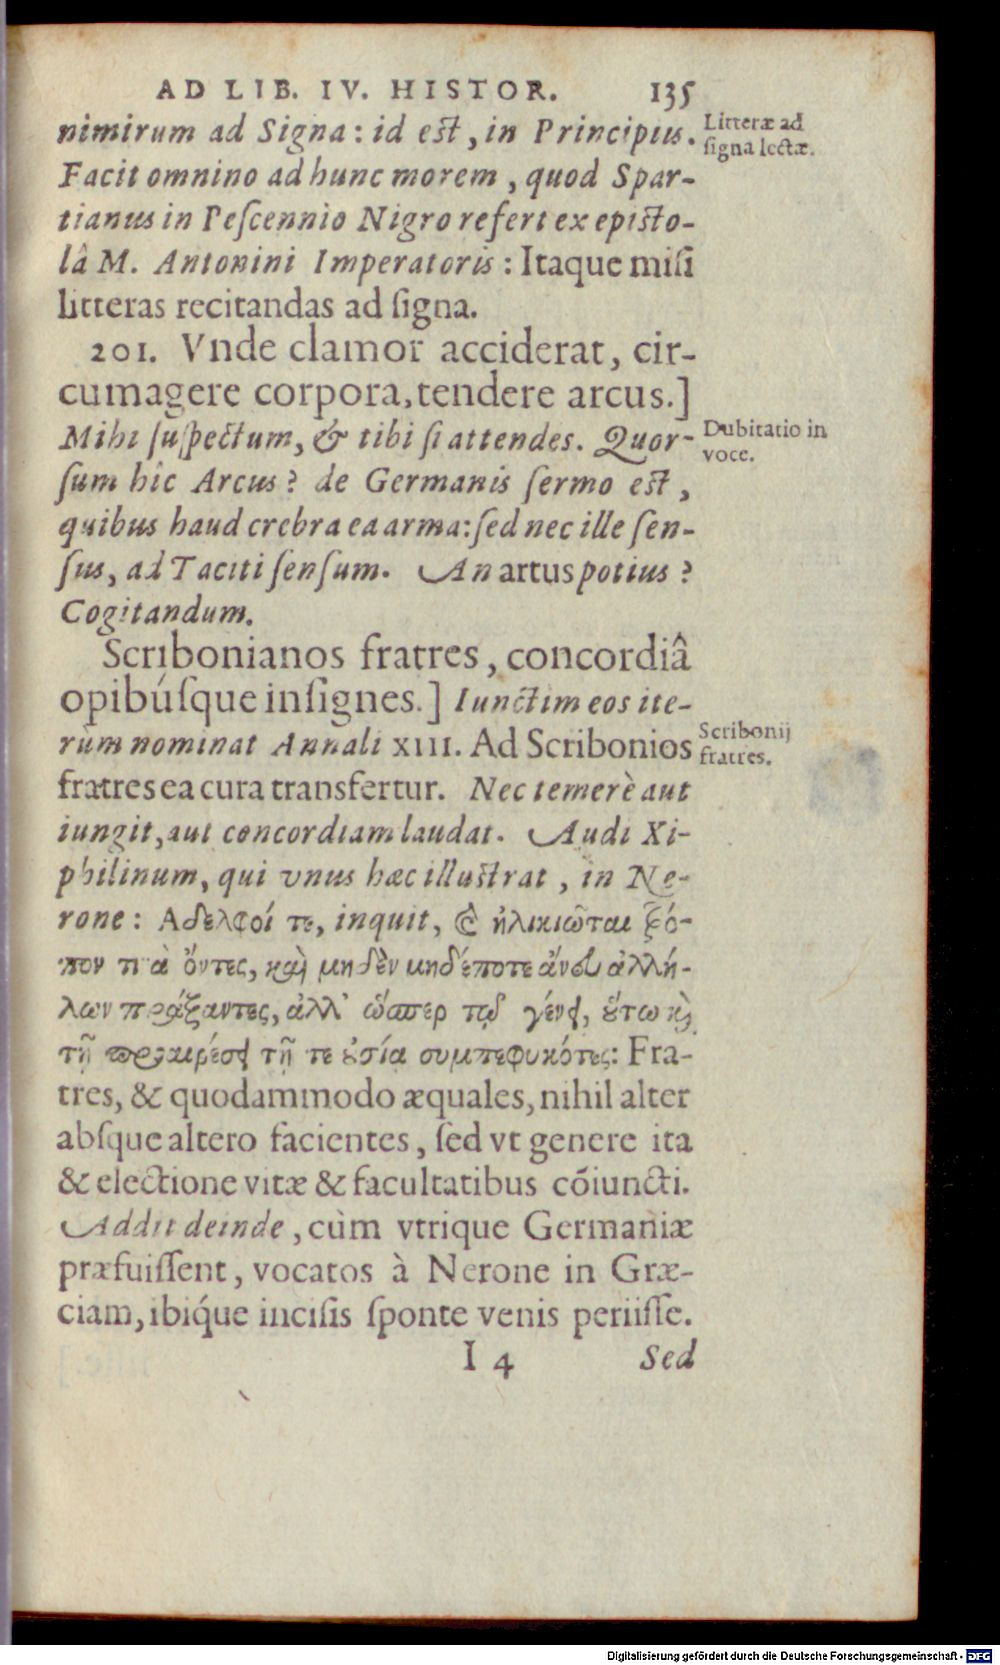 AD LIB. IV. HISTOR. 135
nimirum ad Signa: id est, in Principiis.
Litteræ ad
ſigna lectæ.
Facit omnino ad hunc morem, quod Spar-
tianus in Peſcennio Nigro refert ex episto-
lâ M. Antonini Imperatoris: Itaque miſi
litteras recitandas ad ſigna.
201. Vnde clamor acciderat, cir-
cumagere corpora, tendere arcus.]
Mihi ſuſpectum, & tibi ſi attendes. Quor-
Dubitatio in
voce.
ſum hîc Arcus? de Germanis ſermo est,
quibus haud crebra ea arma: ſed nec ille ſen-
ſus, ad Taciti ſenſum. An artus potius?
Cogitandum.
Scribonianos fratres, concordiâ
opibúſque inſignes.] Iunctim eos ite-
rùm nominat Annali XIII. Ad Scribonios
Scribonij
fratres.
fratres ea cura transfertur. Nec temerè aut
iungit, aut concordiam laudat. Audi Xi-
philinum, qui vnus hæc illustrat, in Ne-
rone: Αδελφοί τε, inquit, & ἡλικιῶται ξό-
πον τινὰ ὄντες, καὶ μηδὲν μηδέποτε ἄνευ ἀλλή-
λων πράξαντες, ἀλλ' ὥσπερ τῷ γένει, ὅτω κὶ
τῇ προαιρέσει τῇ τε ȣσία συμπεφυκότες: Fra-
tres, & quodammodo æquales, nihil alter
abſque altero facientes, ſed vt genere ita
& electione vitæ & facultatibus cōiuncti.
Addit deinde, cùm vtrique Germaniæ
præfuiſſent, vocatos à Nerone in Græ-
ciam, ibíque inciſis ſponte venis periiſſe.
I 4 Sed
Digitalisierung gefördert durch die Deutsche Forschungsgemeinschaft - DFG